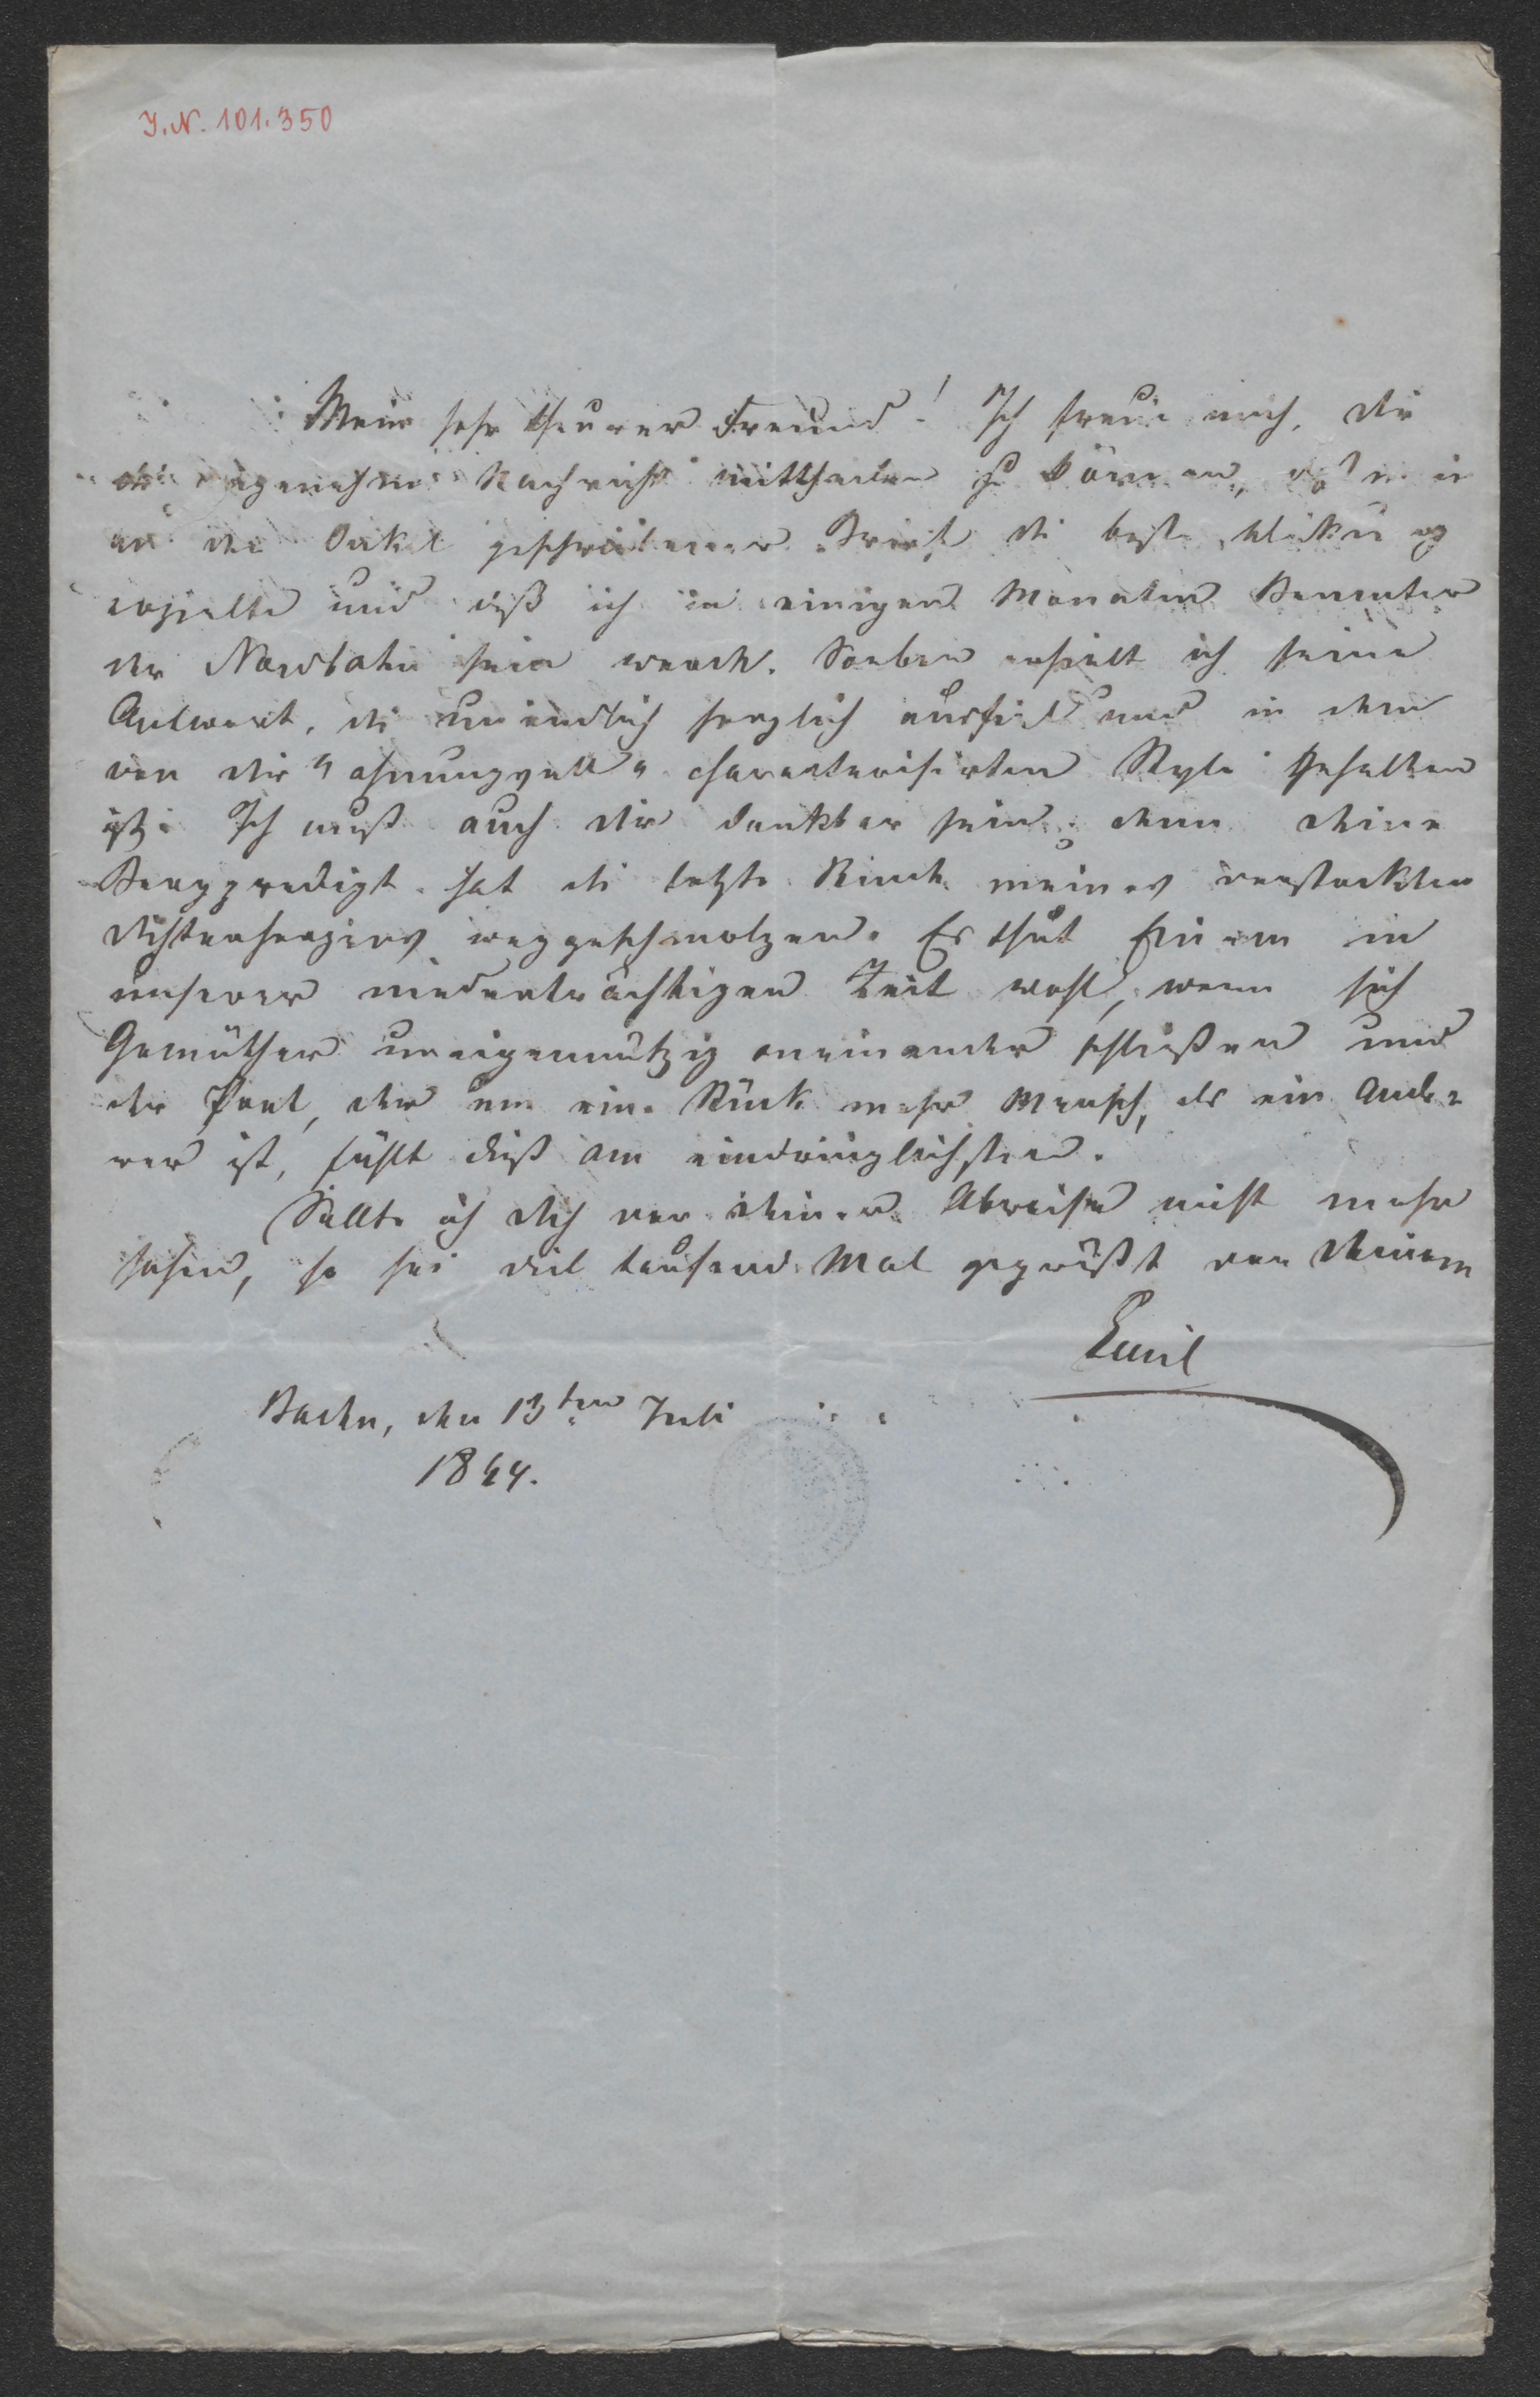 I.N. 101.350
Mein sehr theurer Freund! Ich freue mich, dir
die angenehme Nachricht mittheilen zu können, daß mein
an den Onkel geschriebener Brief die beste Wirkung
erzielte und daß ich in einigen Monaten Beamter
der Nordbahn sein werde. Soeben erhielt ich seine
Antwort, die unendlich herzlich ausfiel und in dem
von dir "ahnungsvoll" charakterisirten Style gehalten
ist. Ich muß auch dir dankbar sein; denn deine
Bergpredigt hat die letzte Rinde meines verstockten
Dichterherzens weggeschmolzen. Es thut Einem in
unserer niederträchtigen Zeit wohl, wenn sich
Gemüther uneigennützig aneinander schließen und
der Poet, der um ein Stück mehr Mensch, als ein Ande-
rer ist, fühlt dieß am eindringlichsten.
Sollte ich dich vor deiner Abreise nicht mehr
sehen, so sei viel tausend Mal gegrüßt von Deinem
Emil
Baden, den 13ten Juli
1844.